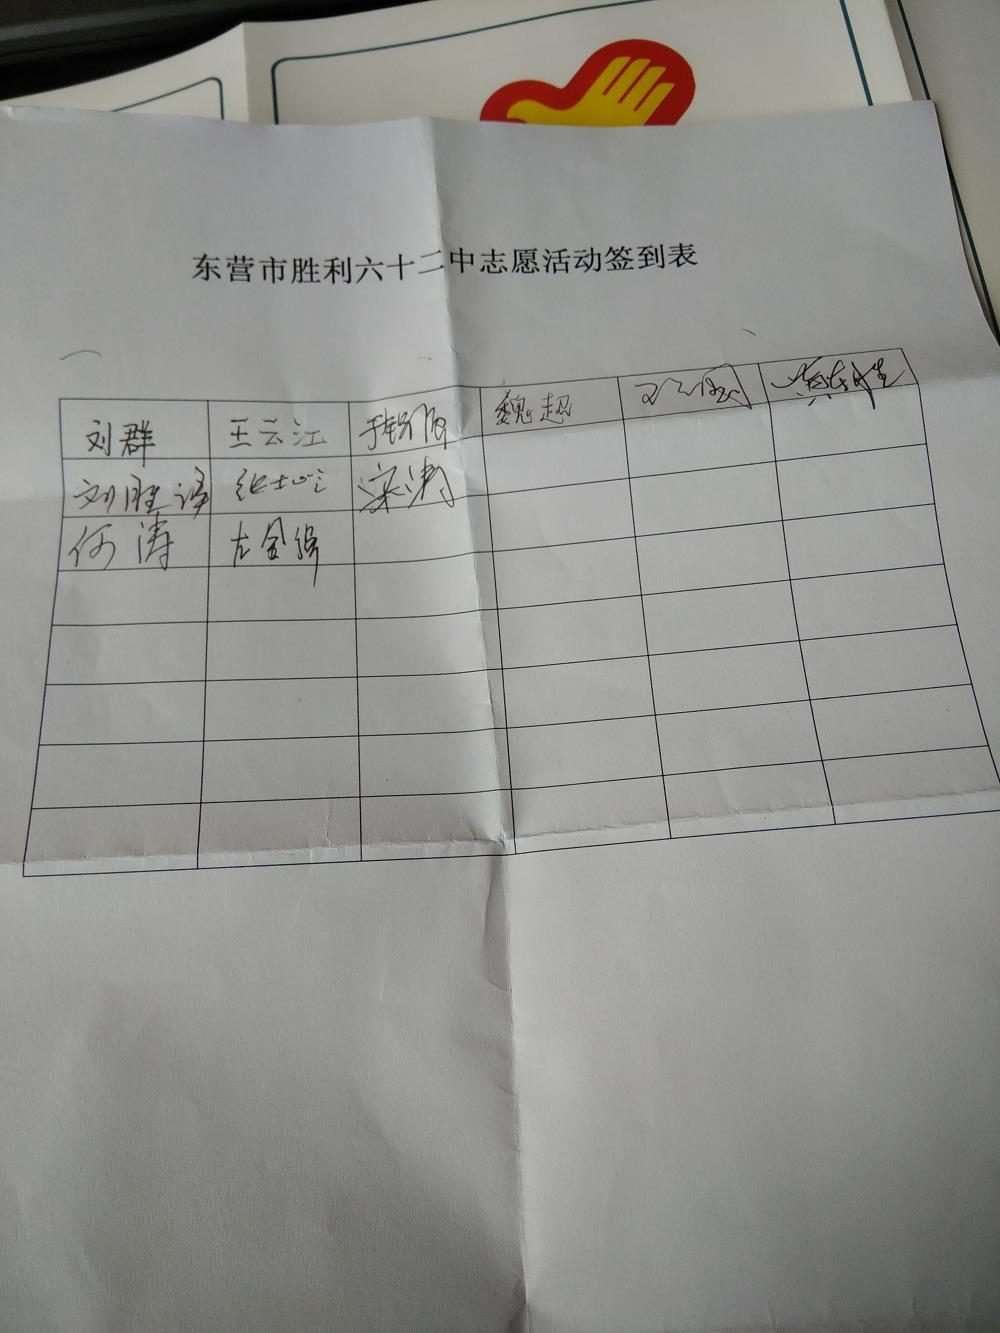 东营市胜利六十二中志愿活动签到表
刘群 王云江 魏超
刘胜 梁涛
何涛 左金